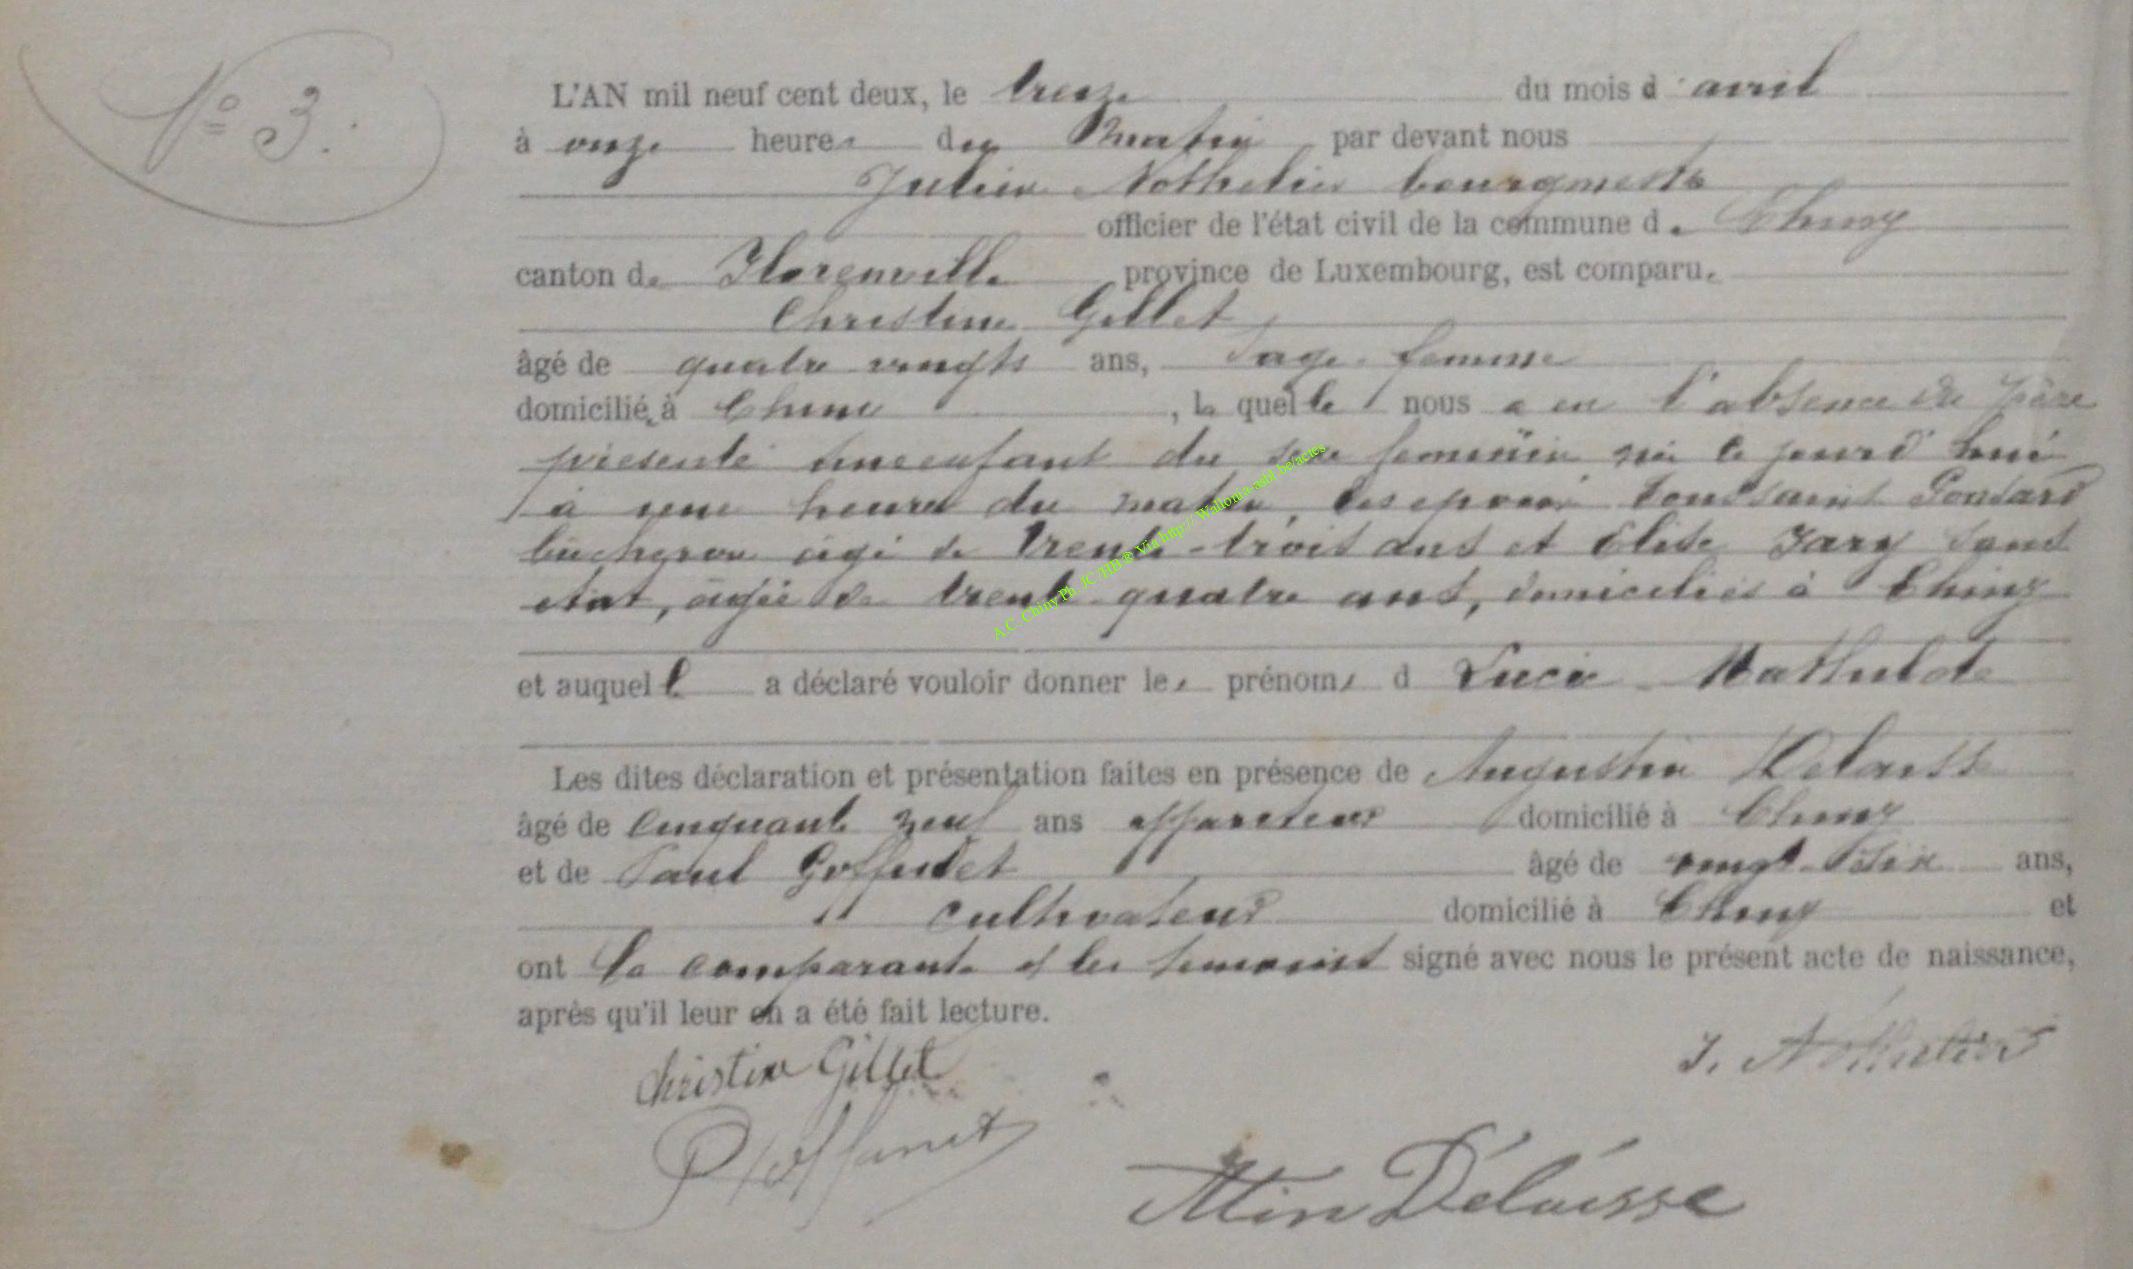 N° 3.
L'AN mil neuf cent deux, le treize du mois d'avril
à onze heures du matin par devant nous
Julien Nothelier bourgmestre
officier de l'état civil de la commune de Chiny
canton de Florenville province de Luxembourg, est comparue
Christine Gillet
âgé de quatre vingts ans, sage femme
domiciliée à Chiny, laquelle nous a en l'absence du père
présenté une enfant du sexe féminin née le jourd'hui
à une heure du matin, des époux Toussaint
bûcheron âgé de trente-trois ans et Elise Jary sans
état, âgée de trente quatre ans, domiciliés à Chiny
et auquel a déclaré vouloir donner les prénoms d Lucie Mathilde
Les dites déclaration et présentation faites en présence de Augustin Delaisse
âgé de cinquante neuf ans appariteur domicilié à Chiny
et de Paul Goffinet âgé de vingt ans,
cultivateur domicilié à Chiny et
ont la comparante et les témoins signé avec nous le présent acte de naissance,
après qu'il leur en a été fait lecture.
Christine Gillet J. Nothelier
P Goffinet
Atin Delaisse
A.C. Chiny Ph. JC /HB® Via http:// Wallonia-asbl.be/actes